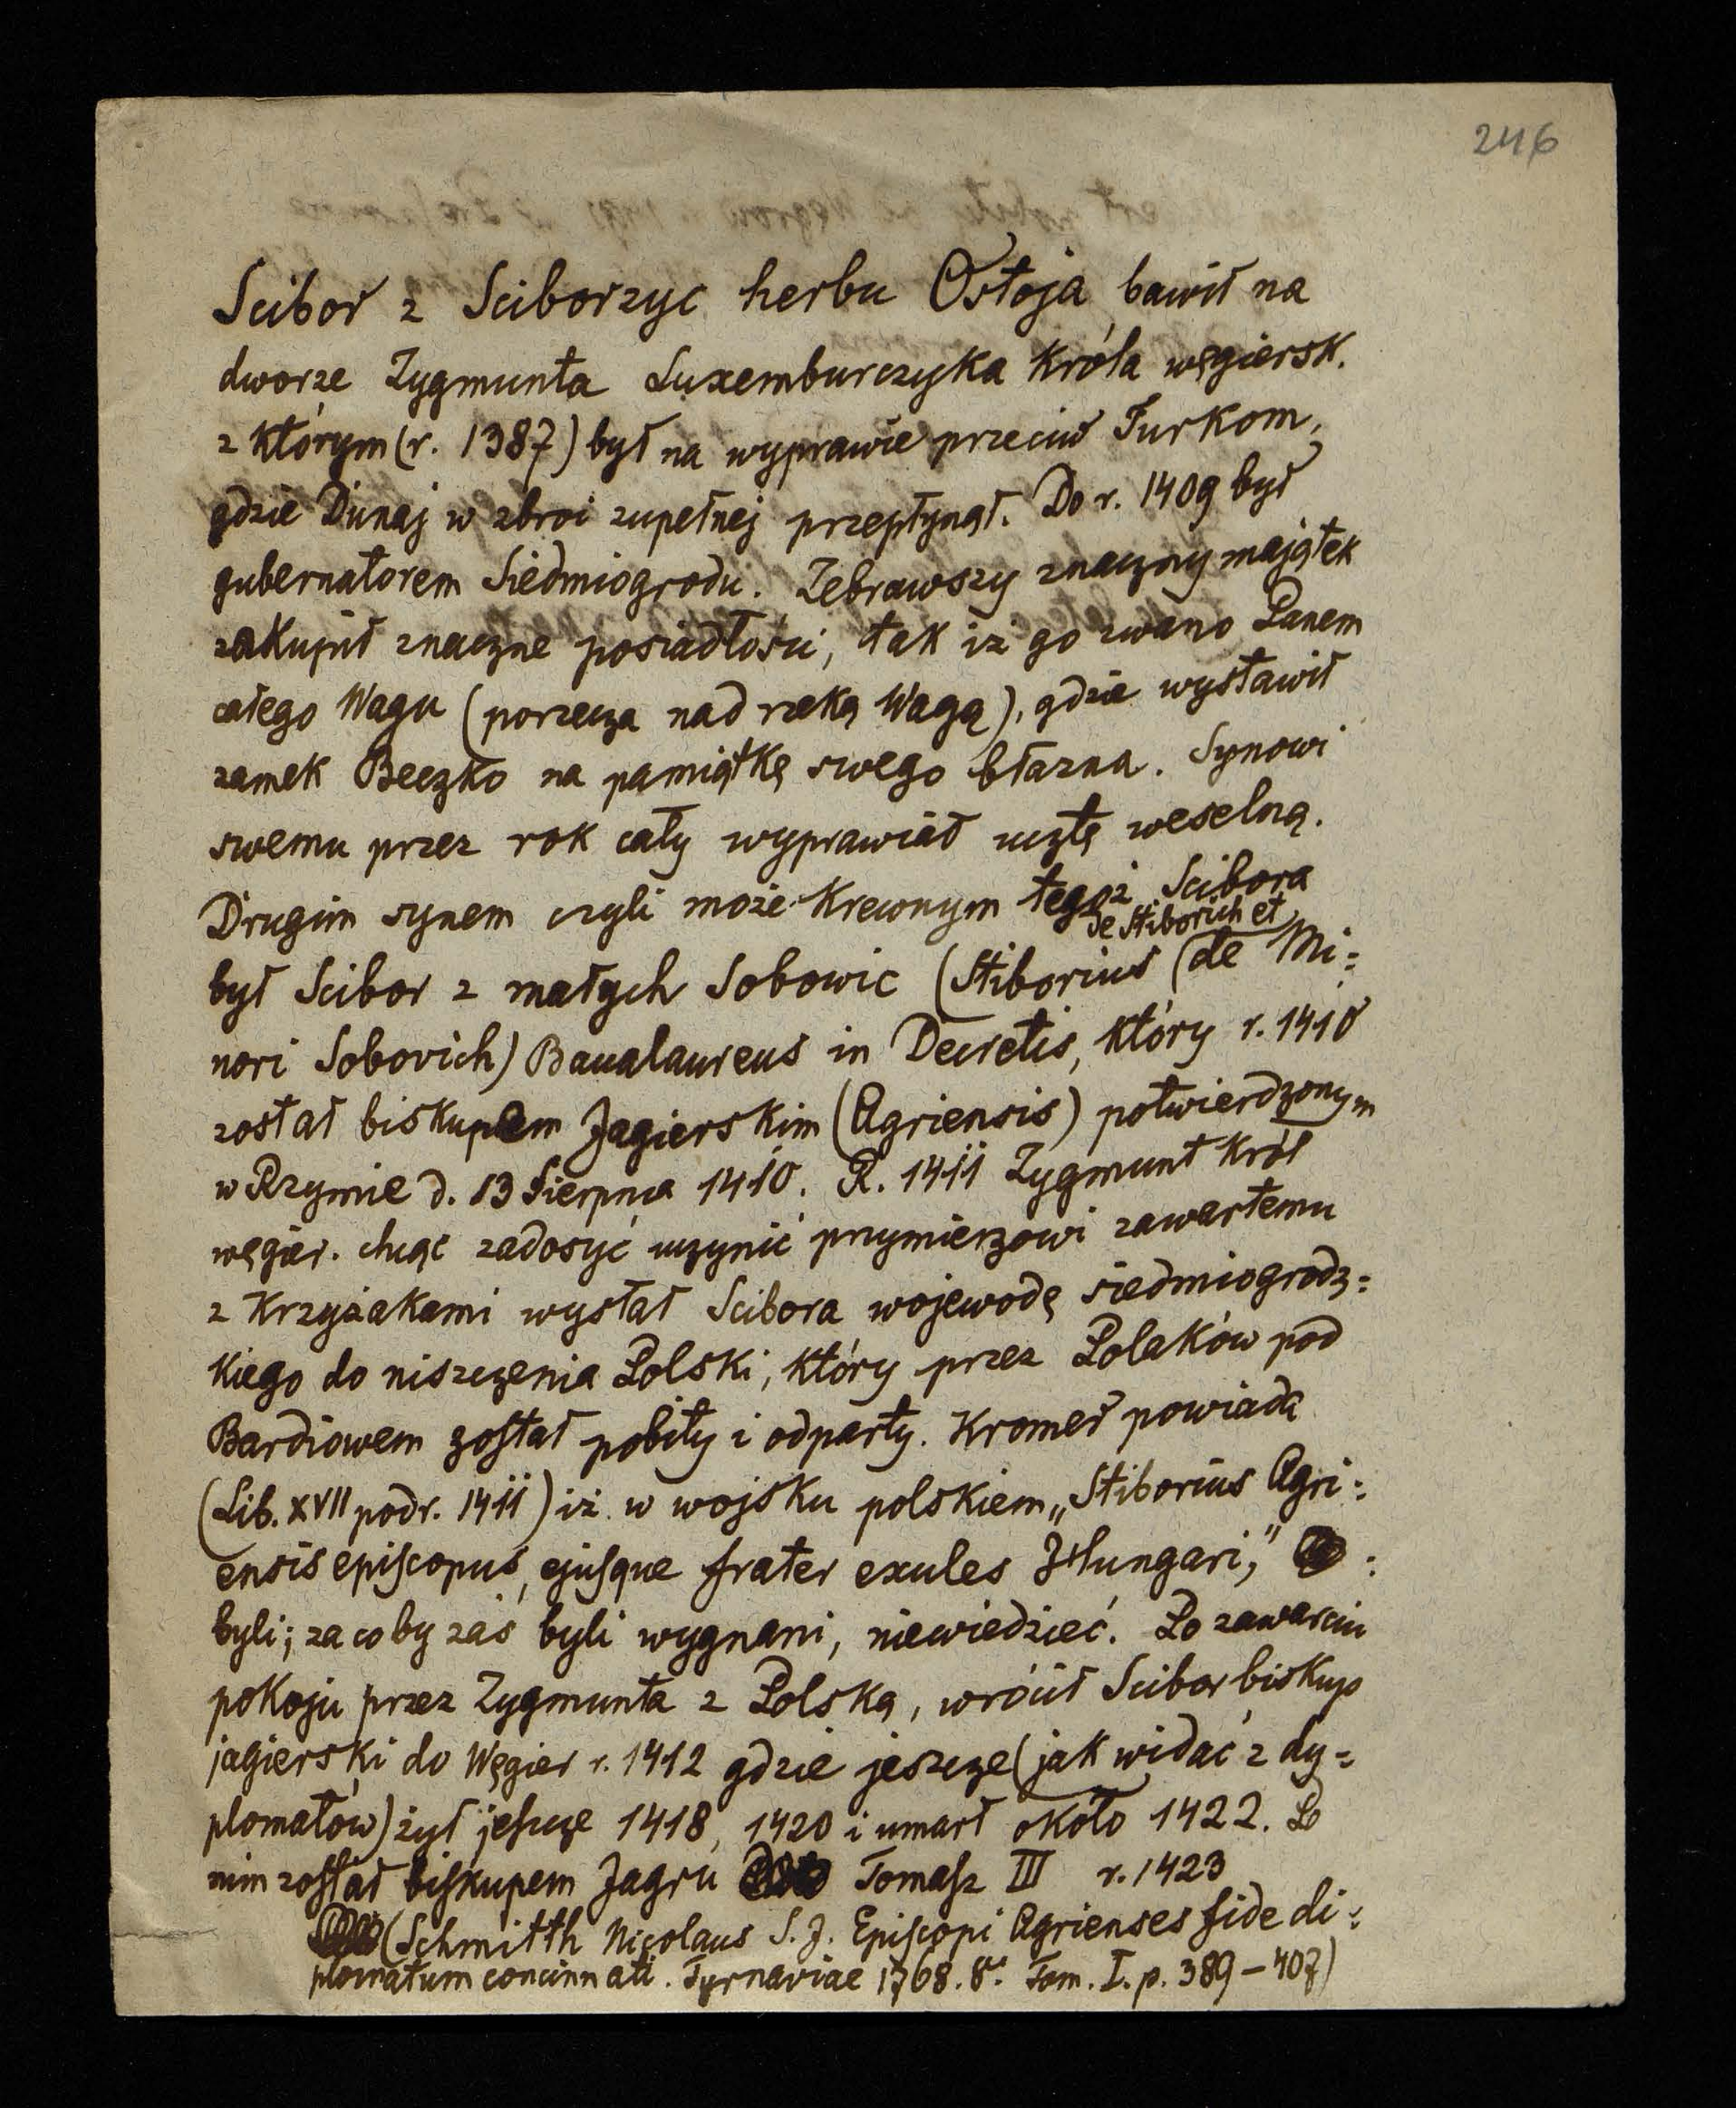 246
Scibor z Sciborzyc herbu Ostoja bawił na
dworze Zygmunta Luxemburczyka króla węgiersk.
z którym (r. 1387) był na wyprawie przeciw Turkom,
gdzie Dunaj w zbroi zupełnej przepłynął. Do r. 1409 był
gubernatorem Siedmiogrodu. Zebrawszy znaczny majątek
zakupił znaczne posiadłości, tak iż go zwano Panem
całego Wagu (porzecza nad rzeką Wagą), gdzie wystawił
zamek Beczko na pamiątkę swego błazna. Synowi
swemu przez rok cały wyprawiał ucztę weselną.
Drugim synem czyli może krewnym tegoż Scibora
de Stiborich et
był Scibor z małych Sobowic (Stiborius (de Mi=
nori Sobovich) Baccalaureus in Decretis, który r. 1410
został biskupem Jagierskim (Agriensis) potwierdzonym
w Rzymie d. 13 Sierpnia 1410. R. 1411 Zygmunt król
węgier. chcąc zadosyć uczynić przymierzowi zawartemu
z Krzyżakami wysłał Scibora wojewodę siedmiogrodz=
kiego do niszczenia Polski, który przez Polaków pod
Bardiowem został pobity i odparty. Kromer powiada
(Lib. XVII pod r. 1411) iż w wojsku polskiem „Stiborius Agri=
ensis episcopus, ejusque frater exules Hungari,"
byli; za co by zaś byli wygnani, niewiedzieć. Po zawarciu
pokoju przez Zygmunta z Polską, wrócił Scibor biskup
jagierski do Węgier r. 1412 gdzie jeszcze (jak widać z dy=
plomatów) żył jeszcze 1418, 1420 i umarł około 1422. Po
nim został biskupem Jagru Tomasz III r. 1423
(Schmitth Nicolaus S. J. Episcopi Agrienses fide di=
plomatum concinnati. Tyrnaviae 1768. 8º. Tom. I. p. 389–407)